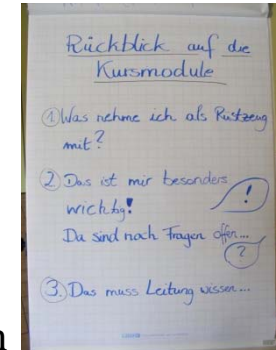 Rückblick auf die
Kursmodule
① Was nehme ich als Rüstzeug
mit?
② Das ist mir besonders
wichtig!
!
Da sind noch Fragen offen...
?
③ Das muss Leitung wissen...
n